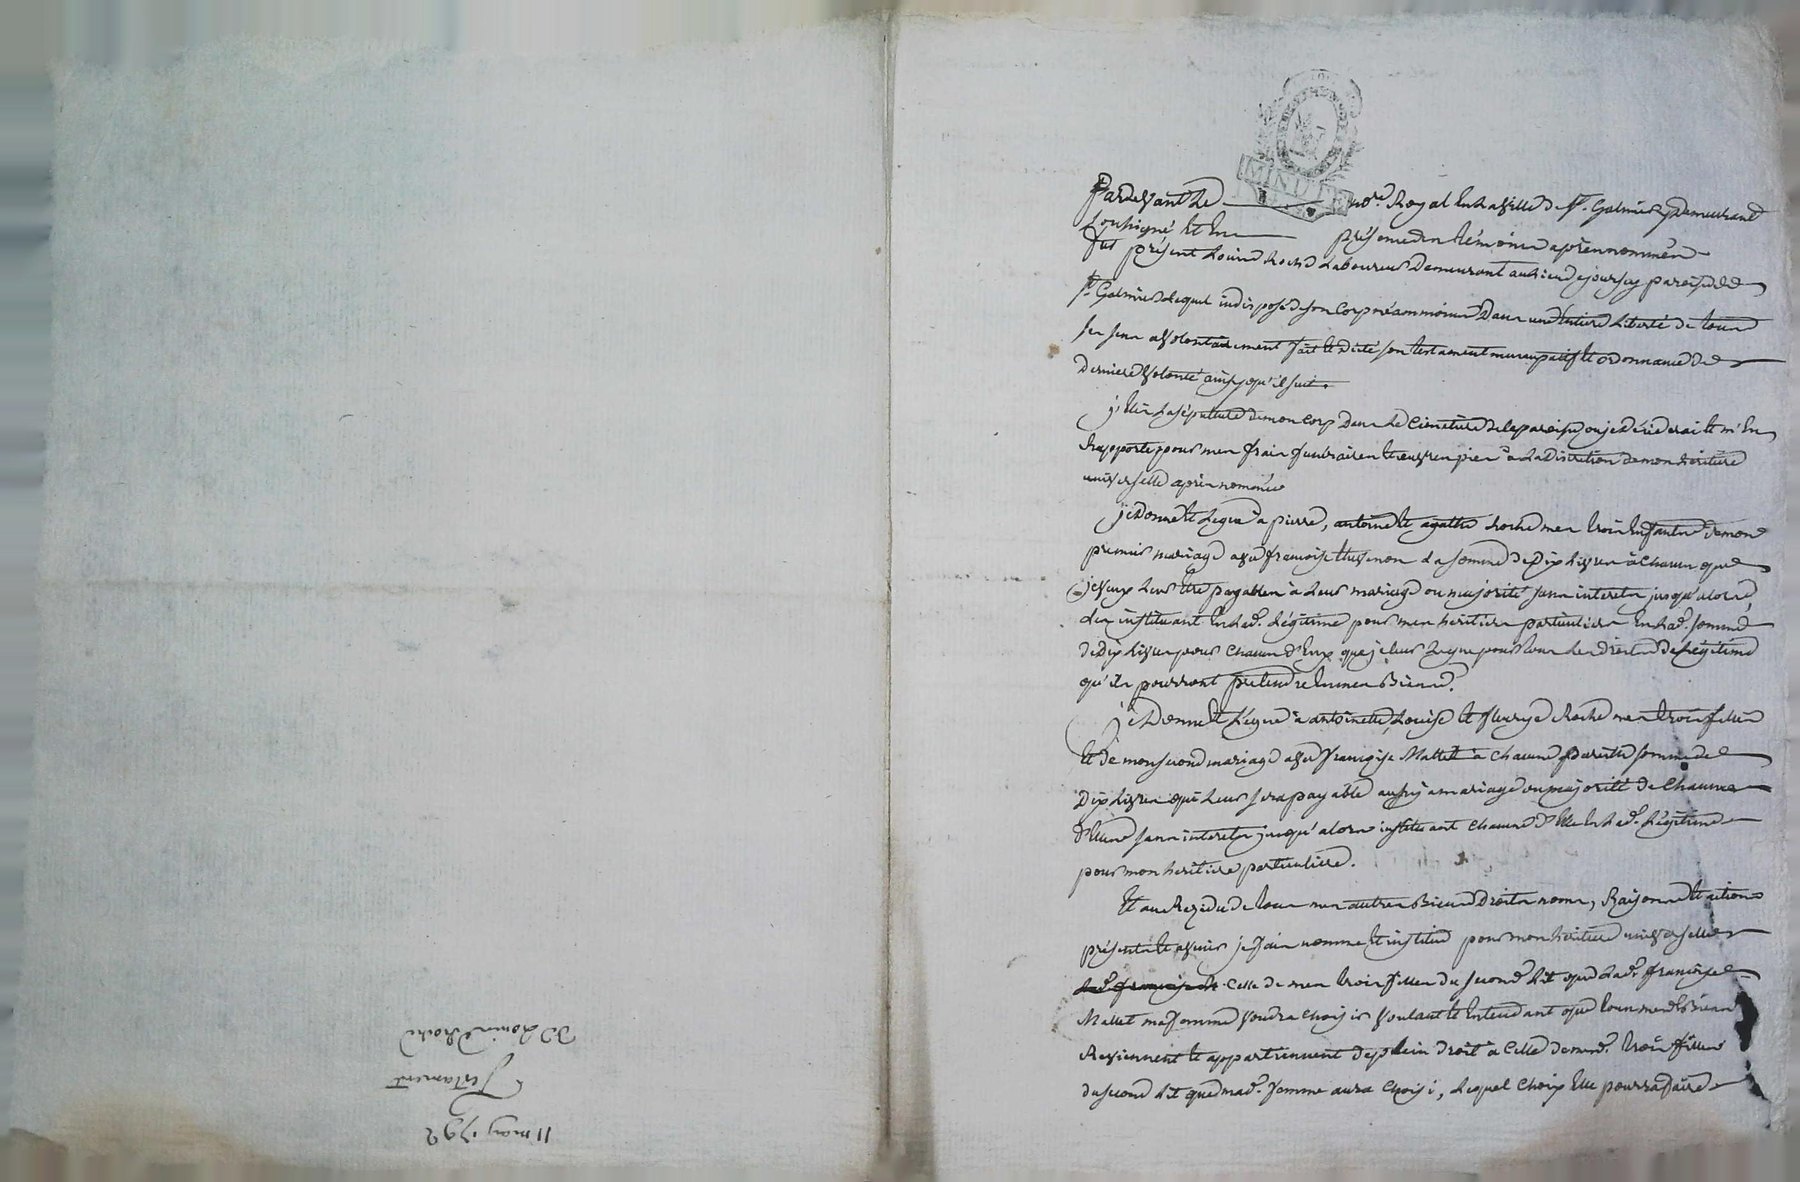 MINUTE
Pardevant Le no.re Royal en la ville de St. Galmier y demeurant
soussigné et en présence des témoins après nommés
fut présent Louis Roche Laboureur demeurant au lieu de jourcey paroisse de
St. Galmier lequel indisposé de son corps néammoins dans une entiere liberté de tous
ses sens a volontairement fait et dicté son testament nuncupatif et ordonnance de
derniere volonté ainsy qu'il suit.
j'élis la sépulture de mon corp dans le cimetiere de la paroisse ou je décéderai et m'en
rapporte pour mes frais funéraires et œuvres pies à la discretion de mon héritiere
universelle après nommée
je donne et legue à pierre, antoine et agathe Roche mes trois enfants de mon
premier mariage avec françoise thevenon la somme de dix livres à chacun que
je veux leur être payables à leur mariage ou majorité sans interets jusqu'alors,
les instituant en lad. légitime pour mes heritiers particuliers en lad. somme
de dix livres pour chacun d'eux que je leur legue pour tous les droits de légitime
qu'ils pourront prétendre en mes biens.
je donne et légue à antoinette, Louise et fleurye Roche mes trois filles
et de mon second mariage avec françoise Mallet à chacune pareille somme de
dix livres qui leur sera payable aussy a mariage ou majorité de chacune
d'elles sans interets jusqu'alors instituant chacune d'elle en lad. légitime
pour mon heritiere particuliere.
Et au Rezedu de tous mes autres biens droits noms, Raisons et actions
présents et avenir je fais nomme et institue pour mon héritiere universelle
celle de mes trois filles du second lit que lad. françoise
Mallet ma femme voudra choisir voulant et entendant que tous mesd. biens
Reviennent et appartiennent de plein droit à celle de mesd. trois filles
du second lit que mad. femme aura choisi, lequel choix elle pourra faire
11 may 1792
Testament
de Louis Roche